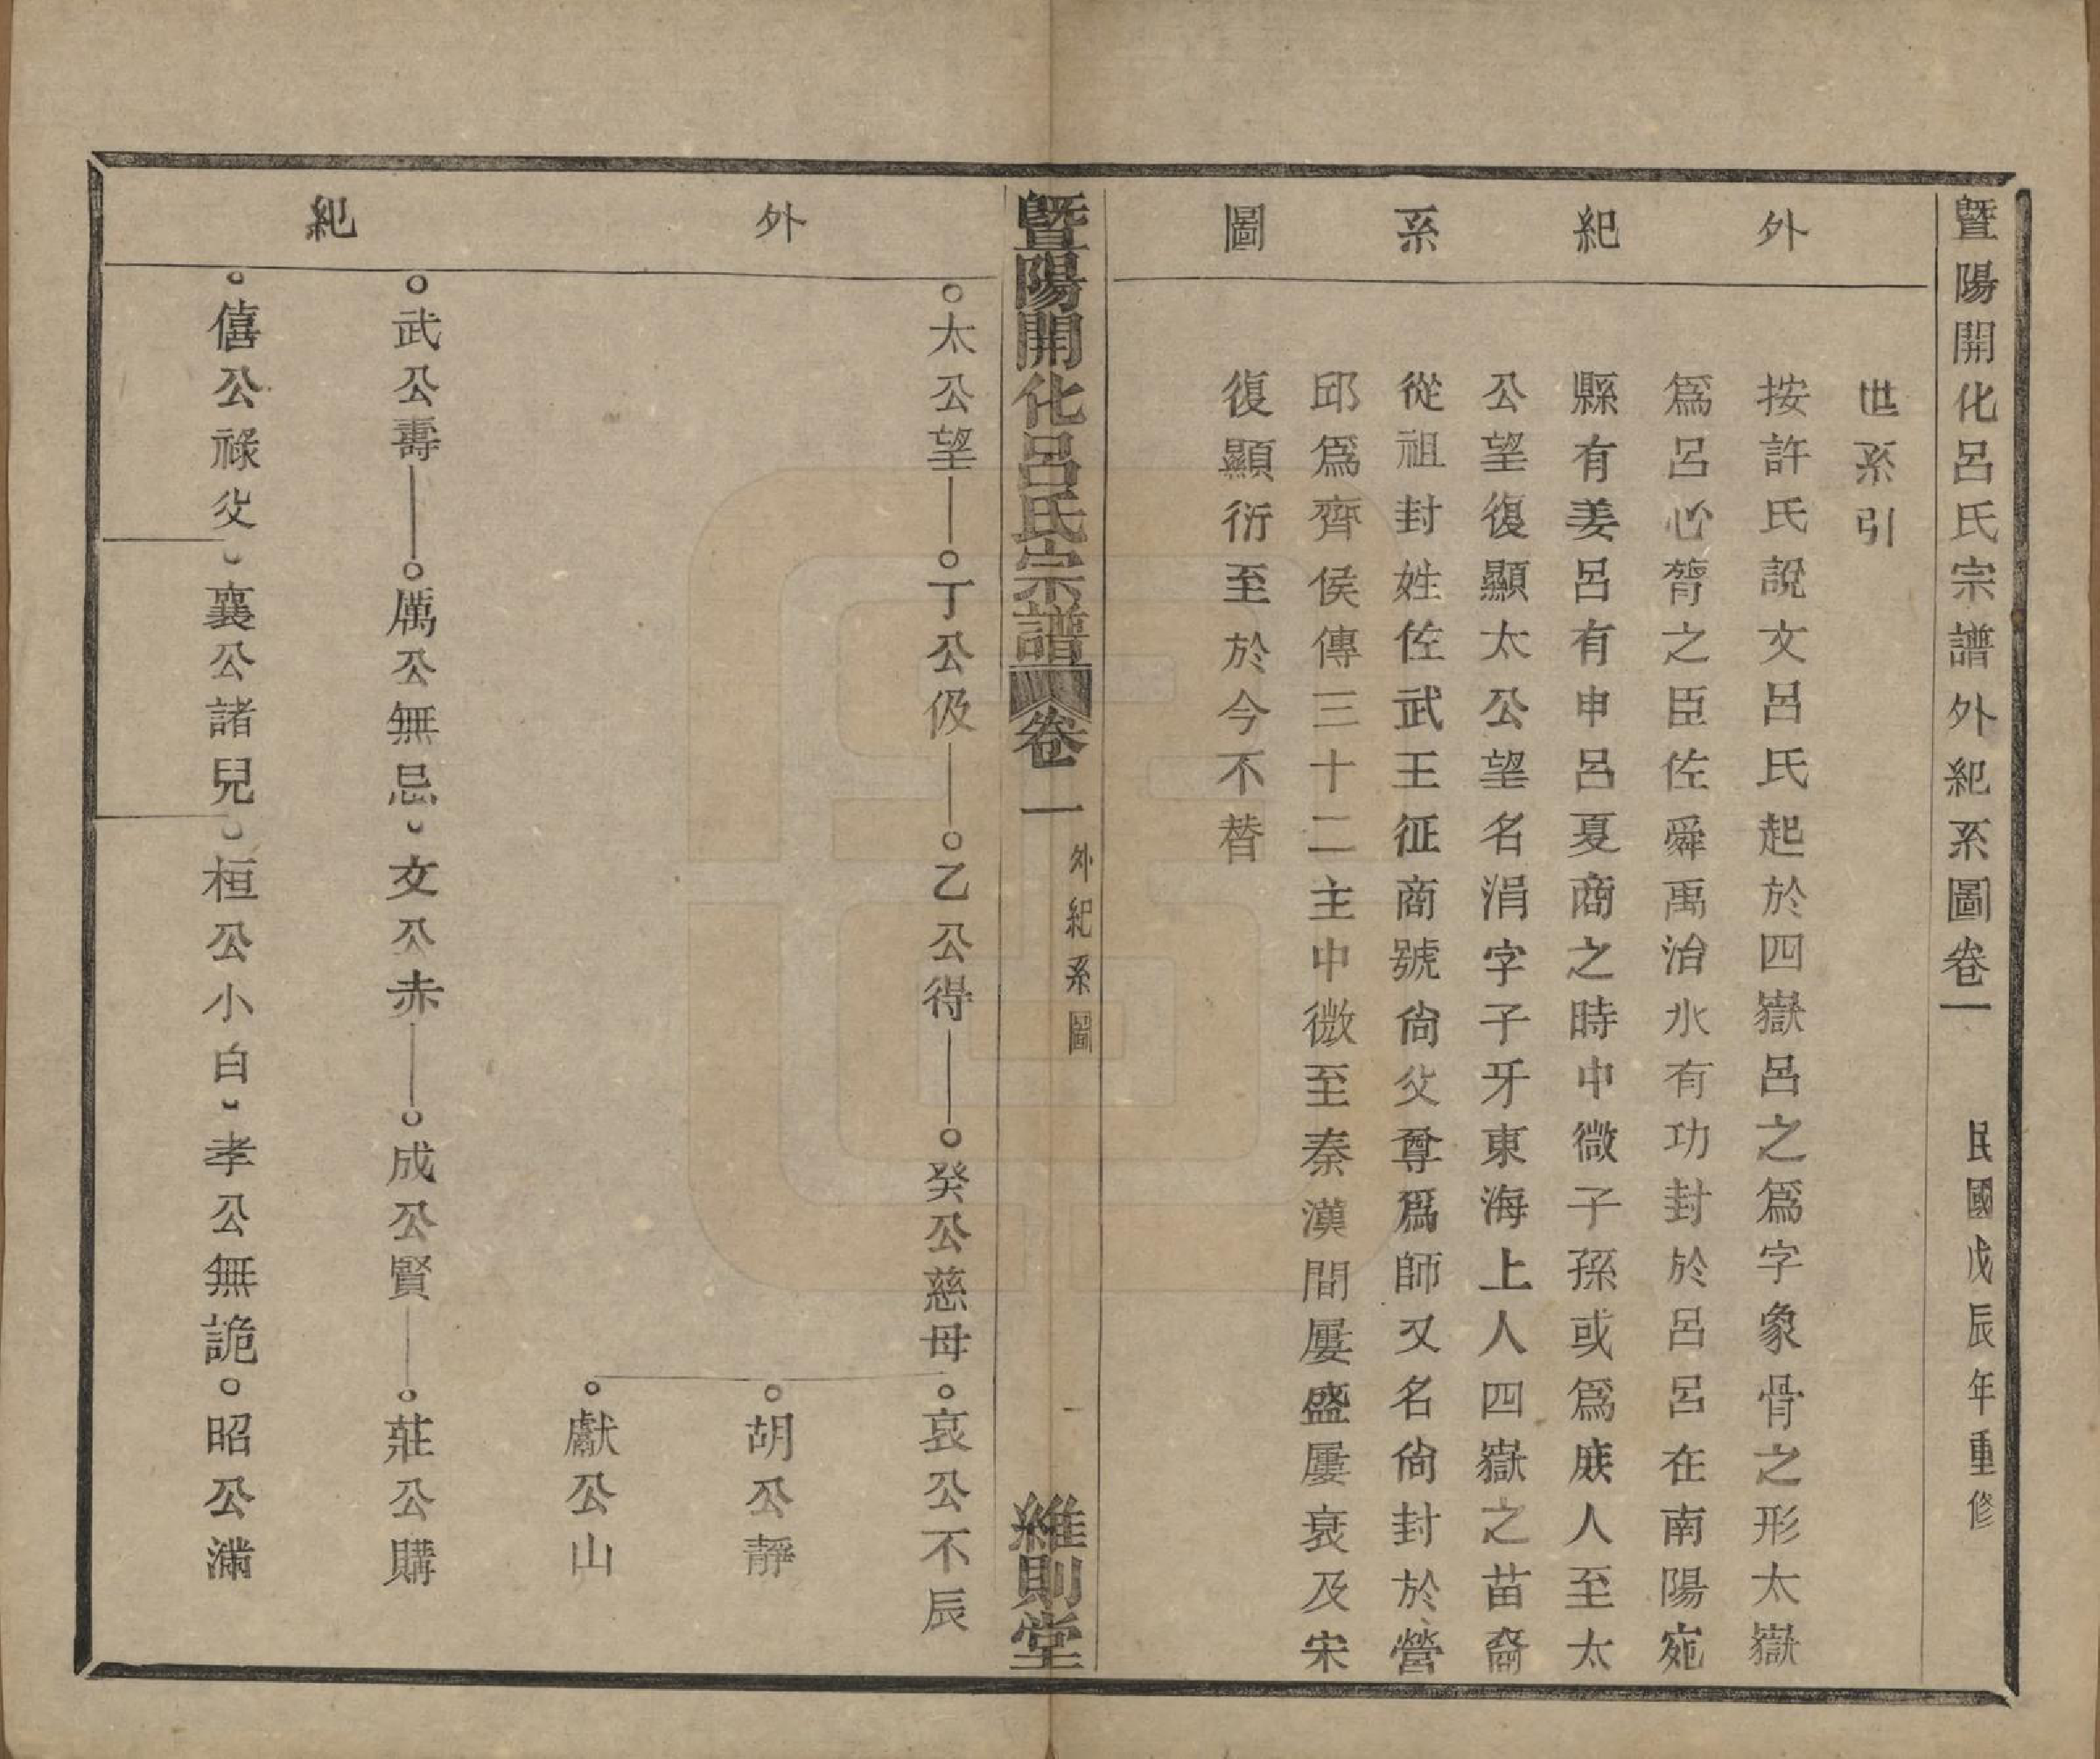 暨陽開化呂氏宗譜外紀系圖卷一　民國戊辰年重修
外紀系圖
世系引
按許氏説文呂氏起於四嶽呂之爲字象骨之形太嶽
爲呂心膂之臣佐舜禹治水有功封於呂呂在南陽宛
縣有姜呂有申呂夏商之時中微子孫或爲庶人至太
公望復顯太公望名涓字子牙東海上人四嶽之苗裔
從祖封姓佐武王征商號尙父尊爲師又名尙封於營
邱爲齊侯傳三十二主中微至秦漢間屢盛屢衰及宋
復顯衍至於今不替
暨陽開化呂氏宗譜 卷一 外紀系圖 一 維則堂
外紀
太公望 丁公伋 乙公得 癸公慈母 哀公不辰
胡公靜
獻公山
武公壽 厲公無忌 文公赤 成公賢 莊公購
僖公祿父 襄公諸兒 桓公小白 孝公無詭 昭公滿